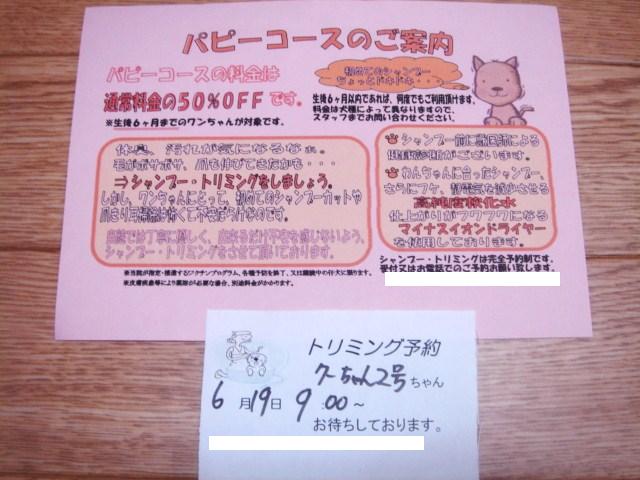 パピーコースのご案内
パピーコースの料金は
通常料金の50%OFFです。
※生後6ヶ月までのワンちゃんが対象です。
初めてのシャンプー
ちょっとドキドキ・・・
生後6ヶ月以内であれば、何度でもご利用頂けます。
料金は犬種によって異なりますので、
スタッフまでお問い合わせください。
体臭、汚れが気になるなぁ。
毛がボサボサ、爪も伸びてきたかも・・・
⇒シャンプー・トリミングをしましょう。
しかし、ワンちゃんにとって、初めてのシャンプーカットや
爪きり耳掃除は怖くて不安ばらけなのです。
当院では丁寧に優しく、出来るだけ不安を感じないよう、
シャンプー・トリミングをさせて頂いております。
シャンプー前に獣医師による
健康診断がございます。
わんちゃんに合ったシャンプー、
さらにフケ、静電気を減少させる
高純度軟化水
仕上がりがフワフワになる
マイナスイオンドライヤー
を使用しております。
※当院が指定・推進するワクチンプログラム、各種予防を終了、又は継続中の仔犬に限ります。
※皮膚疾患等により薬浴が必要な場合、別途料金がかかります。
シャンプー・トリミングは完全予約制です。
受付又はお電話でのご予約お願い致します。
トリミング予約
クーちゃん2号ちゃん
6月19日 9:00～
お待ちしております。